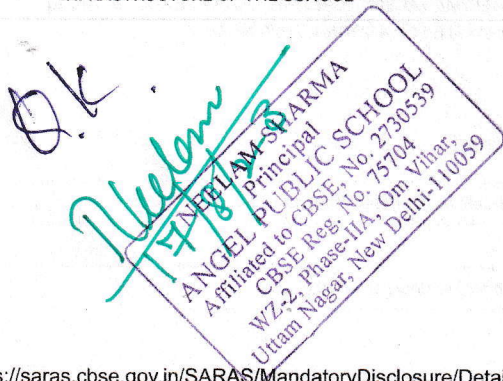 O.K.
Neelam
NEELAM SHARMA
Principal
ANGEL PUBLIC SCHOOL
Affiliated to CBSE, No. 2730539
CBSE Reg. No. 75704
WZ-2, Phase-IIA, Om Vihar,
Uttam Nagar, New Delhi-110059
s://saras.cbse.gov.in/SARAS/MandatoryDisclosure/Detai